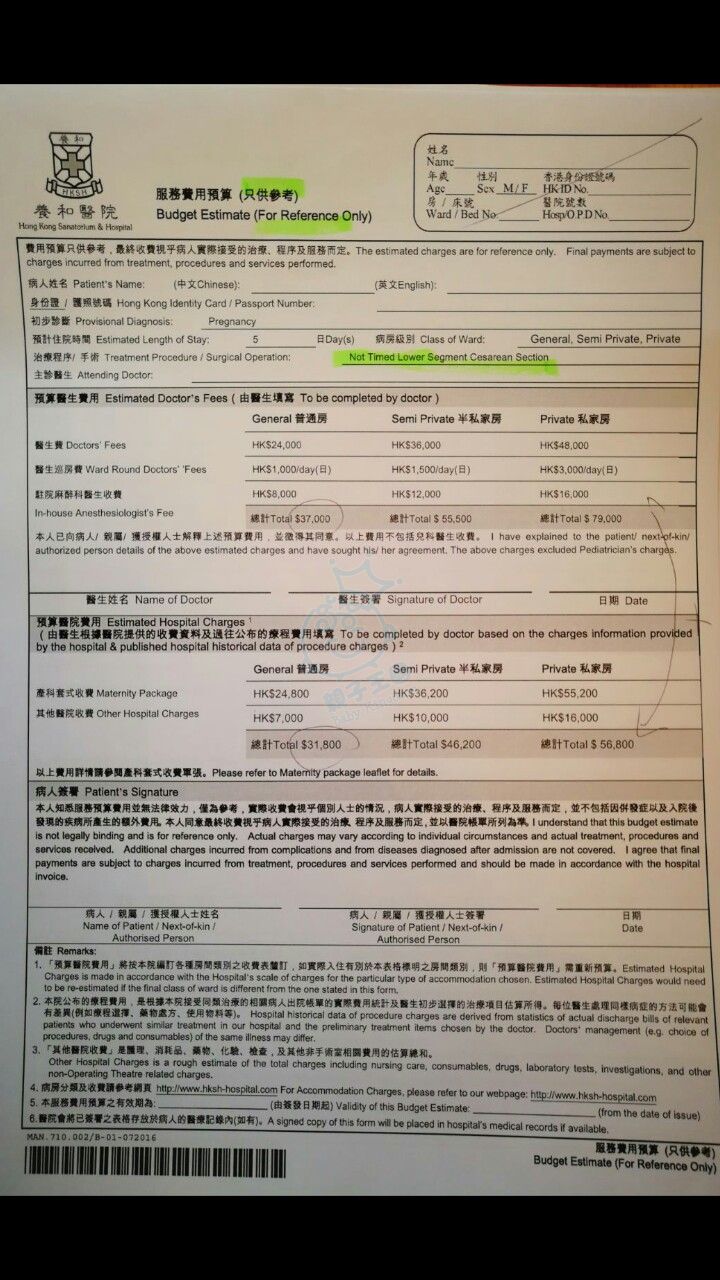 養和
HKSH
養和醫院
Hong Kong Sanatorium & Hospital
服務費用預算 (只供參考)
Budget Estimate (For Reference Only)
姓名
Name
年歲 性別 香港身份證號碼
Age Sex M / F HK·ID No.
房 / 床號 醫院號數
Ward / Bed No. Hosp/O.P.D No.
費用預算只供參考，最終收費視乎病人實際接受的治療、程序及服務而定。The estimated charges are for reference only. Final payments are subject to
charges incurred from treatment, procedures and services performed.
病人姓名 Patient's Name: (中文Chinese): (英文English):
身份證 / 護照號碼 Hong Kong Identity Card / Passport Number:
初步診斷 Provisional Diagnosis: Pregnancy
預計住院時間 Estimated Length of Stay: 5 日Day(s) 病房級別 Class of Ward: General, Semi Private, Private
治療程序/ 手術 Treatment Procedure / Surgical Operation: Not Timed Lower Segment Cesarean Section
主診醫生 Attending Doctor:
預算醫生費用 Estimated Doctor's Fees ( 由醫生填寫 To be completed by doctor )
General 普通房 Semi Private 半私家房 Private 私家房
醫生費 Doctors' Fees HK$24,000 HK$36,000 HK$48,000
醫生巡房費 Ward Round Doctors' 'Fees HK$1,000/day(日) HK$1,500/day(日) HK$3,000/day(日)
駐院麻醉科醫生收費 HK$8,000 HK$12,000 HK$16,000
In-house Anesthesiologist's Fee 總計Total $37,000 總計Total $ 55,500 總計Total $ 79,000
本人已向病人/ 親屬/ 獲授權人士解釋上述預算費用，並徵得其同意。以上費用不包括兒科醫生收費。 I have explained to the patient/ next-of-kin/
authorized person details of the above estimated charges and have sought his/ her agreement. The above charges excluded Pediatrician's charges.
醫生姓名 Name of Doctor 醫生簽署 Signature of Doctor 日期 Date
預算醫院費用 Estimated Hospital Charges ¹
( 由醫生根據醫院提供的收費資料及過往公布的療程費用填寫 To be completed by doctor based on the charges information provided
by the hospital & published hospital historical data of procedure charges ) ²
General 普通房 Semi Private 半私家房 Private 私家房
產科套式收費 Maternity Package HK$24,800 HK$36,200 HK$55,200
其他醫院收費 Other Hospital Charges HK$7,000 HK$10,000 HK$16,000
總計Total $31,800 總計Total $46,200 總計Total $ 56,800
親子王國
Baby Kingdom
以上費用詳情請參閱產科套式收費單張。Please refer to Maternity package leaflet for details.
病人簽署 Patient's Signature
本人知悉服務預算費用並無法律效力，僅為參考，實際收費會視乎個別人士的情況，病人實際接受的治療、程序及服務而定，並不包括因併發症以及入院後
發現的疾病所產生的額外費用。本人同意最終收費視乎病人實際接受的治療、程序及服務而定，並以醫院帳單所列為準。I understand that this budget estimate
is not legally binding and is for reference only. Actual charges may vary according to individual circumstances and actual treatment, procedures and
services received. Additional charges incurred from complications and from diseases diagnosed after admission are not covered. I agree that final
payments are subject to charges incurred from treatment, procedures and services performed and should be made in accordance with the hospital
invoice.
病人 / 親屬 / 獲授權人士姓名 病人 / 親屬 / 獲授權人士簽署 日期
Name of Patient / Next-of-kin / Signature of Patient / Next-of-kin / Date
Authorised Person Authorised Person
備註 Remarks:
1. 「預算醫院費用」將按本院編訂各種房間類別之收費表釐訂，如實際入住有別於本表格標明之房間類別，則「預算醫院費用」需重新預算。Estimated Hospital
Charges is made in accordance with the Hospital's scale of charges for the particular type of accommodation chosen. Estimated Hospital Charges would need
to be re-estimated if the final class of ward is different from the one stated in this form.
2. 本院公布的療程費用，是根據本院接受同類治療的相關病人出院帳單的實際費用統計及醫生初步選擇的治療項目估算所得。每位醫生處理同樣病症的方法可能會
有差異(例如療程選擇、藥物處方、使用物料等)。 Hospital historical data of procedure charges are derived from statistics of actual discharge bills of relevant
patients who underwent similar treatment in our hospital and the preliminary treatment items chosen by the doctor. Doctors' management (e.g. choice of
procedures, drugs and consumables) of the same illness may differ.
3. 「其他醫院收費」是護理、消耗品、藥物、化驗、檢查，及其他非手術室相關費用的估算總和。
Other Hospital Charges is a rough estimate of the total charges including nursing care, consumables, drugs, laboratory tests, investigations, and other
non-Operating Theatre related charges.
4. 病房分類及收費請參考網頁 http://www.hksh-hospital.com For Accommodation Charges, please refer to our webpage: http://www.hksh-hospital.com
5. 本服務費用預算之有效期為: (由簽發日期起) Validity of this Budget Estimate: (from the date of issue)
6. 醫院會將已簽署之表格存放於病人的醫療記錄內(如有)。A signed copy of this form will be placed in hospital's medical records if available.
MAN.710.002/B-01-072016
服務費用預算 (只供參考)
Budget Estimate (For Reference Only)